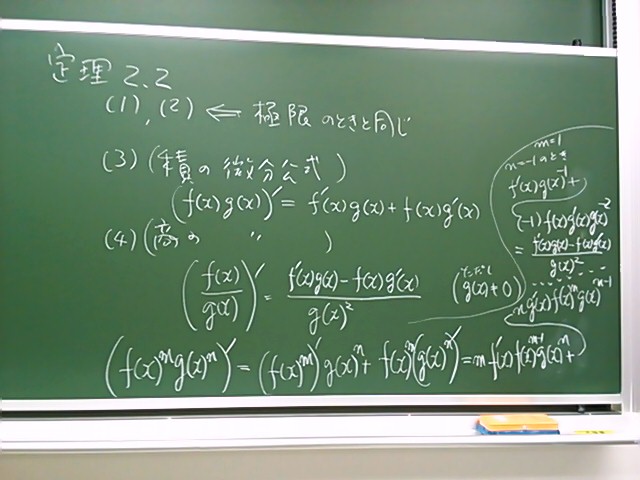 定理 2.2
(1), (2) ⇐ 極限のときと同じ
(3) (積の微分公式)
(f(x)g(x))′ = f′(x)g(x) + f(x)g′(x)
(4) (商の 〃 )
(f(x)/g(x))′ = (f′(x)g(x) − f(x)g′(x))/g(x)² (ただし g(x) ≠ 0)
(f(x)^m g(x)^n)′ = (f(x)^m)′ g(x)^n + f(x)^m (g(x)^n)′ = m f′(x) f(x)^{m-1} g(x)^n +
n g′(x) f(x)^m g(x)^{n-1}
m=1
n=−1のとき
f′(x)g(x)^{-1} +
(−1) f(x)g′(x)g(x)^{-2}
= (f′(x)g(x) − f(x)g′(x))/g(x)²